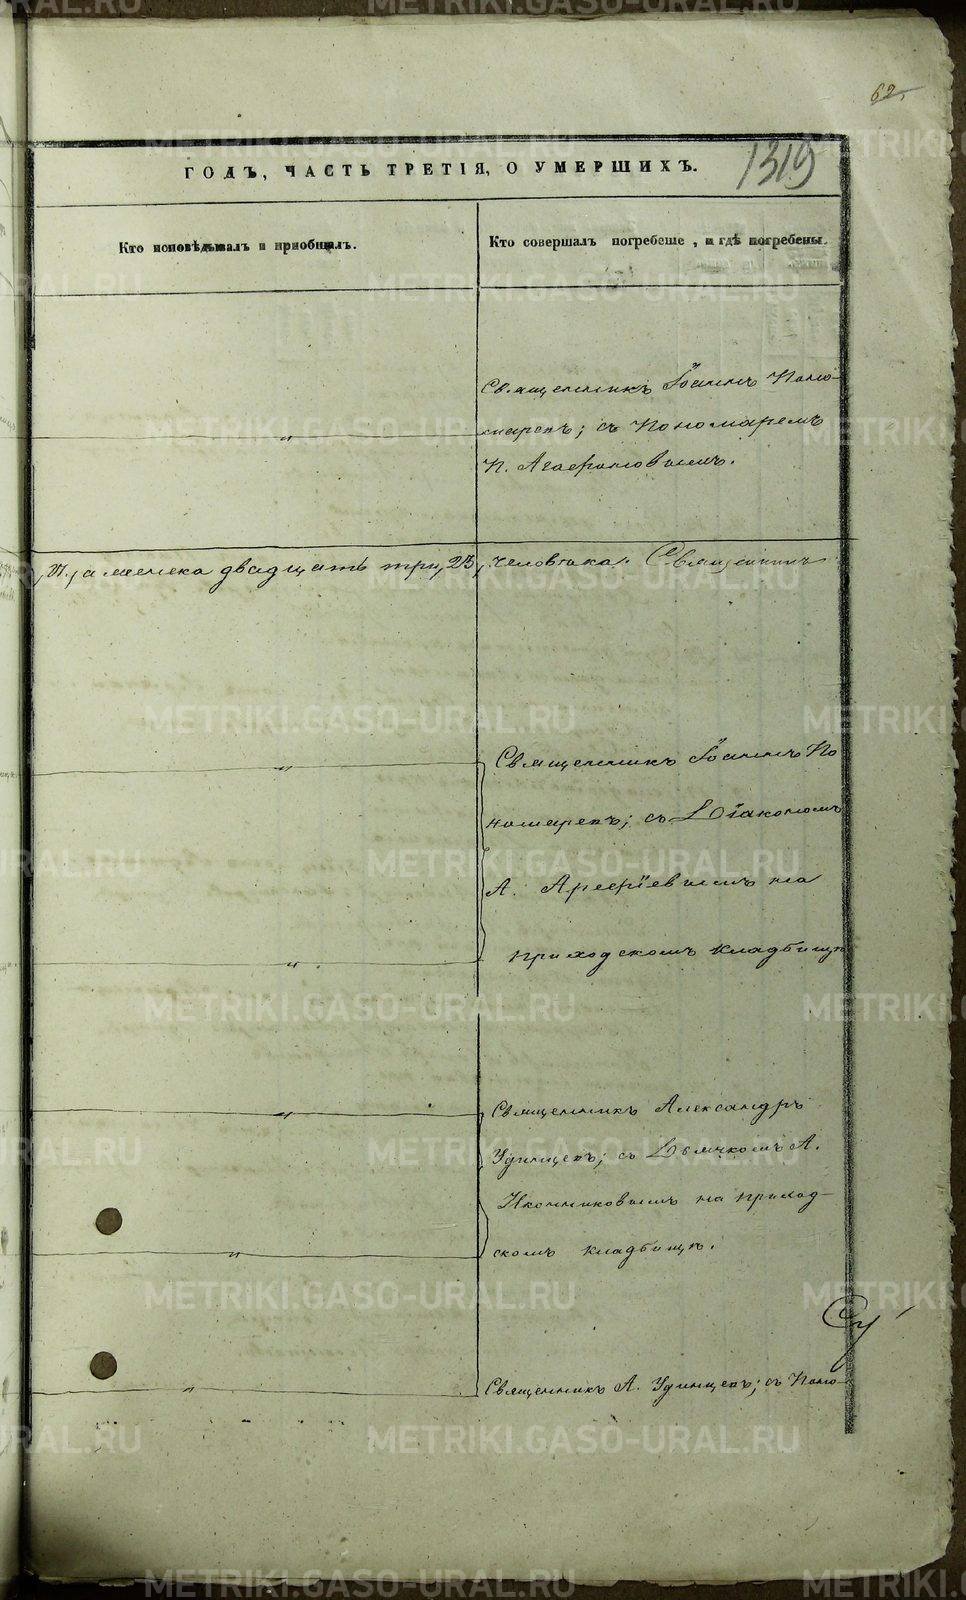 62.
1319
ГОДЪ, ЧАСТЬ ТРЕТІЯ, О УМЕРШИХЪ.
Кто исповѣдывалъ и пріобщалъ.
Кто совершалъ погребеніе, и гдѣ погребены.
Священникъ Іоаннъ Поно-
маревъ; съ Пономаремъ
П. Агафоновымъ.
„
а женска двадцать три, 23, человѣка. Священникъ
„
Священникъ Іоаннъ По
номаревъ; съ Діакономъ
А. Арефіевымъ на
приходскомъ кладбищѣ
„
„
Священникъ Александръ
Удинцевъ; съ Дьячкомъ А.
Иконниковымъ на приход-
скомъ кладбищѣ.
„
„
Священникъ А. Удинцевъ; съ Поно-
METRIKI.GASO-URAL.RU